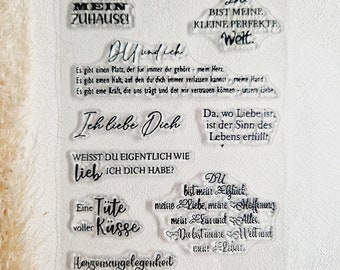 MEIN
ZUHAUSE!
Du
BIST MEINE
KLEINE PERFEKTE
Welt.
DU und ich.
Es gibt einen Platz, der für immer dir gehört - mein Herz.
Es gibt einen Halt, auf den du dich immer verlassen kannst - meine Hand.
Es gibt eine Kraft, die uns trägt und der wir vertrauen können - unsere Liebe.
Ich liebe Dich
Da, wo Liebe ist,
ist der Sinn des
Lebens erfüllt.
WEISST DU EIGENTLICH WIE
lieb ICH DICH HABE?
Eine Tüte
voller Küsse
DU
bist mein Glück,
meine Liebe, meine Hoffnung,
mein Ein und Alles.
Du bist meine Welt und
mein Leben.
Herzensangelegenheit